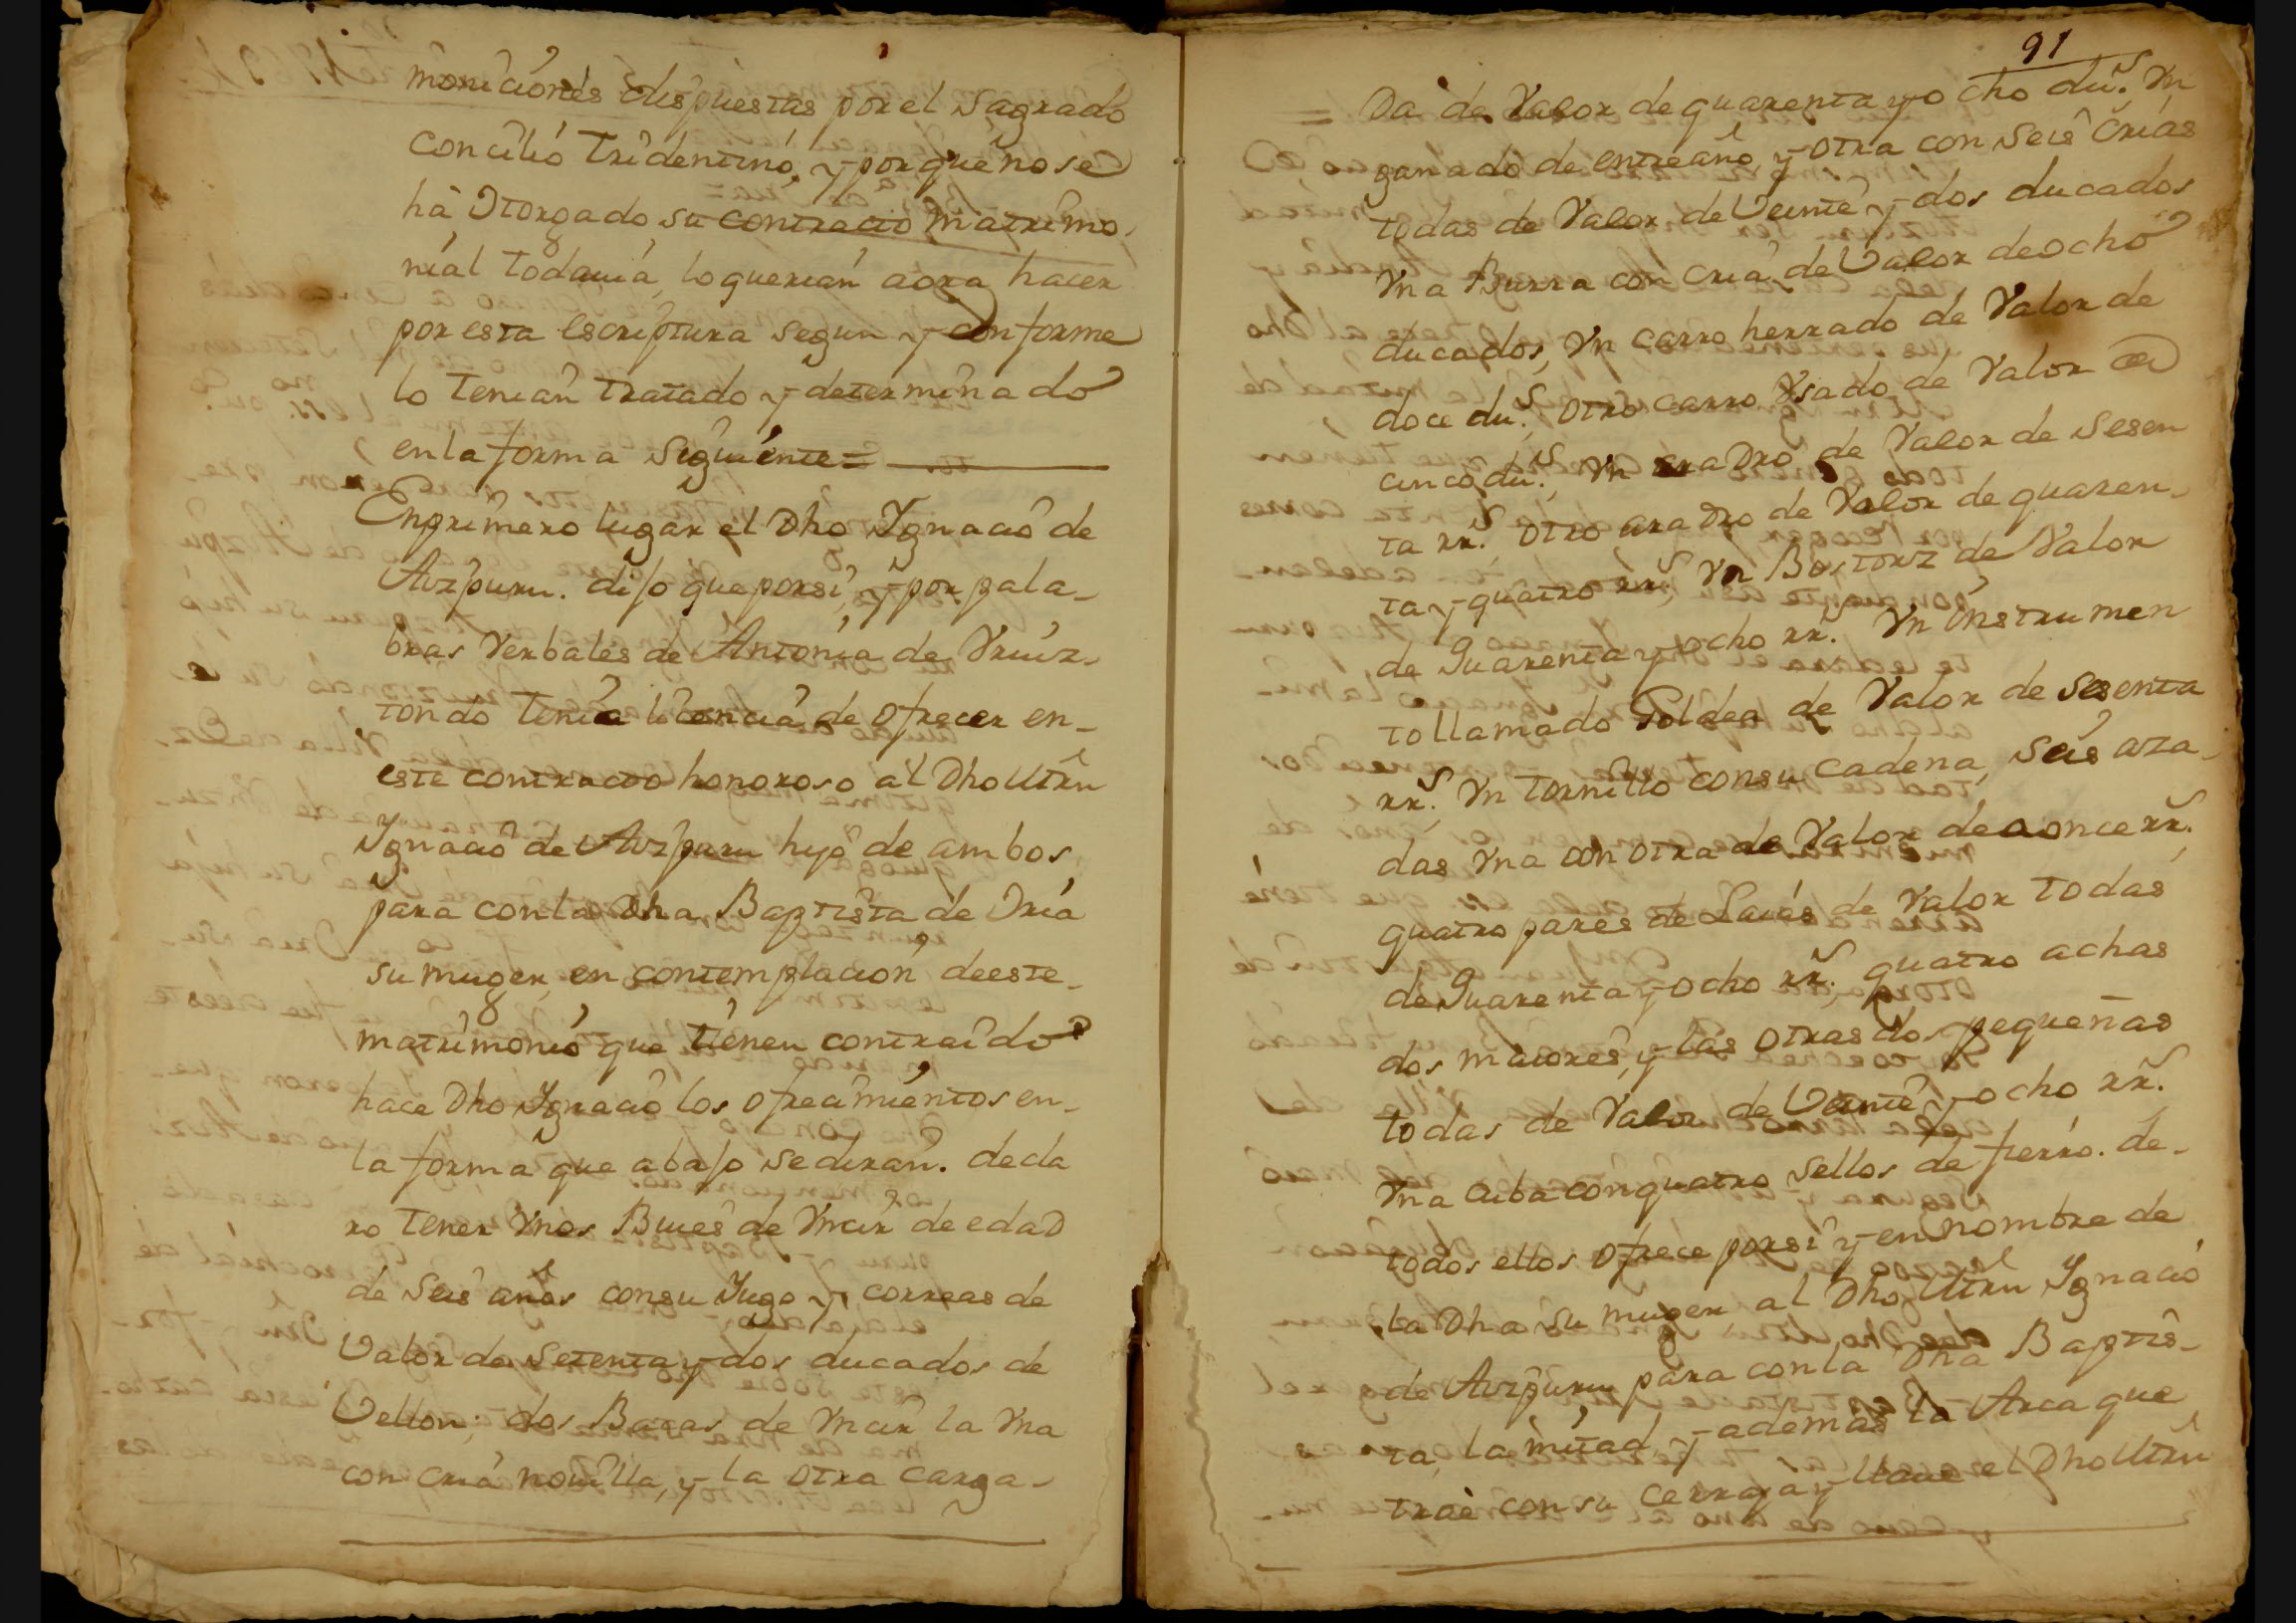 moniciones dispuestas por el Sagrado
Concilio Tridentino, y porque no se
hà Otorgado su contracto matrimo-
nial todauia, lo querian aora hacer
por esta escriptura segun y conforme
lo tenian tratado y determinado
en la forma siguiente=
En primero lugar el Dho Ygnacio de
Aizpuru. dijo que por si, y por pala-
bras verbales de Antonia de Vruiz-
tondo tenia licencia de ofrecer en-
este contracto honoroso al Dho Mrñ
Ygnacio de Aizpuru hijo de ambos
para con la Dha Baptista de Oria
su muger, en contemplacion de este
matrimonio que tienen contraido
hace Dho Ygnacio los ofrecimientos en-
la forma que abajo se diran. decla
ro tener Vnos Bues de Yncir de edad
de seis años con su Yugo y correas de
Valor de setenta y dos ducados de
Vellon; dos Bacas de Yncir la Vna
con cria nouilla, y la otra carga-
91
Da de Valor de quarenta y ocho dus. Vn
ganado de entreaño, y otra con seis Crias
todas de Valor de Veinte y dos ducados
Vna Burra con cria, de Valor de ocho
ducados, Vn carro herrado de Valor de
doce dus. otro carro Vsado de Valor de
cinco dus. Vn aradro de Valor de sesen
ta rrs. otro aradro de Valor de quaren-
ta y quatro rrs. Vn Bostorz de Valor
de quarenta y ocho rrs. Vn instrumen
to llamado Goldea de Valor de sesenta
rrs. Vn tornillo con su cadena, seis aza-
das Vna con otra de Valor de a once rrs.
quatro pares de Laias de Valor todas
de quarenta y ocho rrs. quatro achas
dos maiores, y las otras dos pequeñas
todas de Valor de Veinte y ocho rrs.
Vna cuba con quatro sellos de fierro. de-
todos ellos ofrece por si y en nombre de
la Dha su muger al Dho Mrñ Ygnacio
de Aizpuru para con la Dha Baptis-
ta, la mitad y ademas la Arca que
traè con su cerraja y llaue el Dho Mrñ